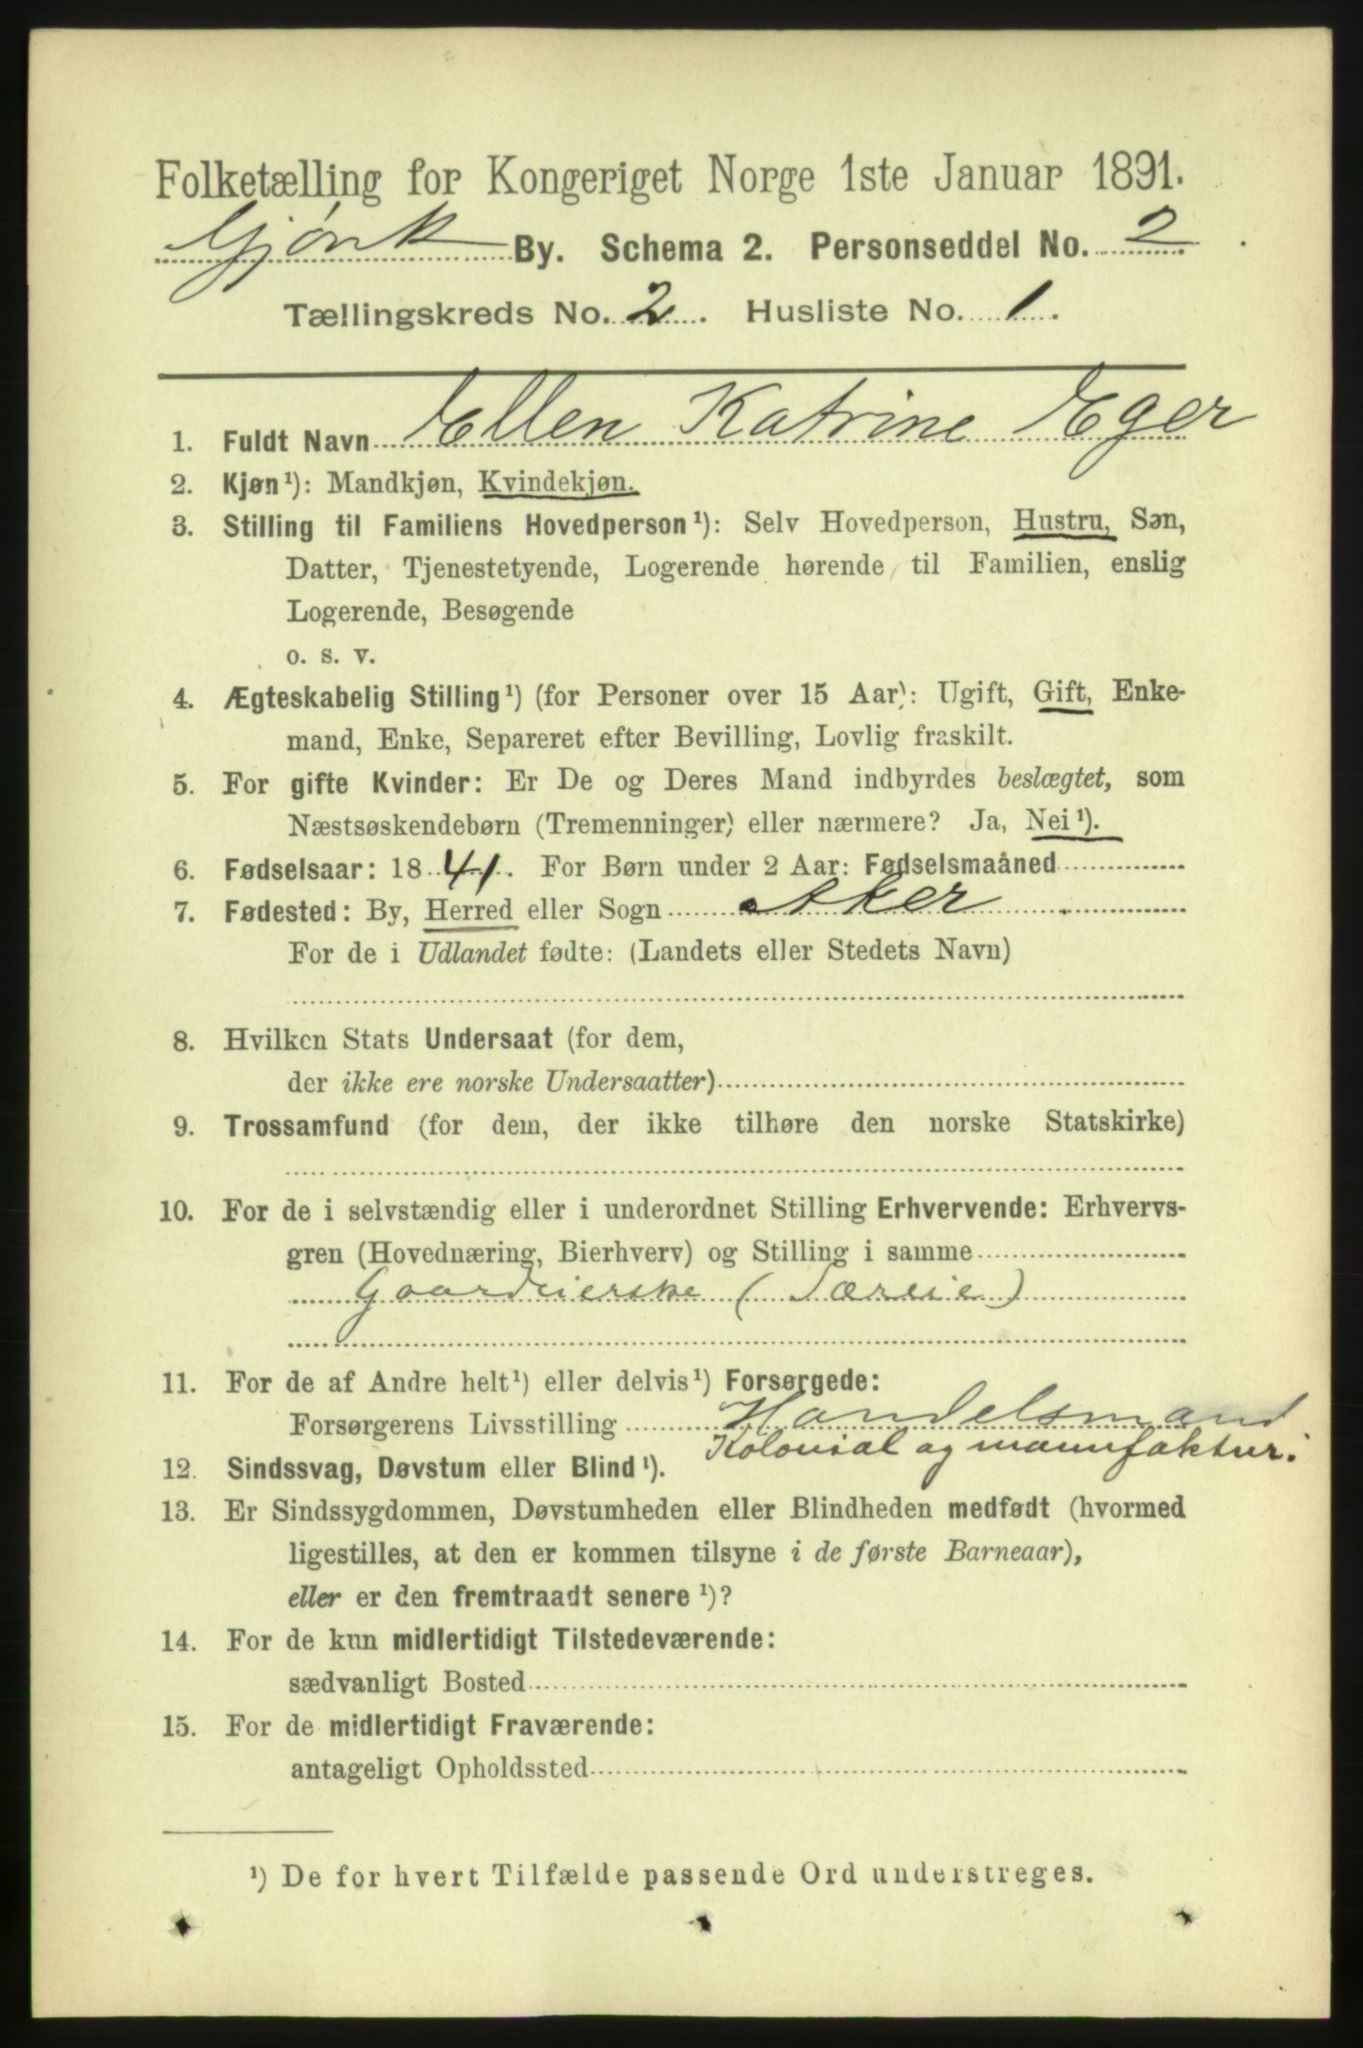 Folketælling for Kongeriget Norge 1ste Januar 1891.
Gjøvik By. Schema 2. Personseddel No. 2
Tællingskreds No. 2. Husliste No. 1.
1. Fuldt Navn Ellen Katrine Eger
2. Kjøn¹): Mandkjøn, Kvindekjøn.
3. Stilling til Familiens Hovedperson¹): Selv Hovedperson, Hustru, Søn,
Datter, Tjenestetyende, Logerende hørende til Familien, enslig
Logerende, Besøgende
o. s. v.
4. Ægteskabelig Stilling¹) (for Personer over 15 Aar): Ugift, Gift, Enke-
mand, Enke, Separeret efter Bevilling, Lovlig fraskilt.
5. For gifte Kvinder: Er De og Deres Mand indbyrdes beslægtet, som
Næstsøskendebørn (Tremenninger) eller nærmere? Ja, Nei¹).
6. Fødselsaar: 1841. For Børn under 2 Aar: Fødselsmaaned
7. Fødested: By, Herred eller Sogn Aker
For de i Udlandet fødte: (Landets eller Stedets Navn)
8. Hvilken Stats Undersaat (for dem,
der ikke ere norske Undersaatter)
9. Trossamfund (for dem, der ikke tilhøre den norske Statskirke)
10. For de i selvstændig eller i underordnet Stilling Erhvervende: Erhvervs-
gren (Hovednæring, Bierhverv) og Stilling i samme
Gaardeierske (Særeie)
11. For de af Andre helt¹) eller delvis¹) Forsørgede:
Forsørgerens Livsstilling Handelsmand
Kolonial og mannfaktur.
12. Sindssvag, Døvstum eller Blind¹).
13. Er Sindssygdommen, Døvstumheden eller Blindheden medfødt (hvormed
ligestilles, at den er kommen tilsyne i de første Barneaar),
eller er den fremtraadt senere¹)?
14. For de kun midlertidigt Tilstedeværende:
sædvanligt Bosted
15. For de midlertidigt Fraværende:
antageligt Opholdssted
¹) De for hvert Tilfælde passende Ord understreges.